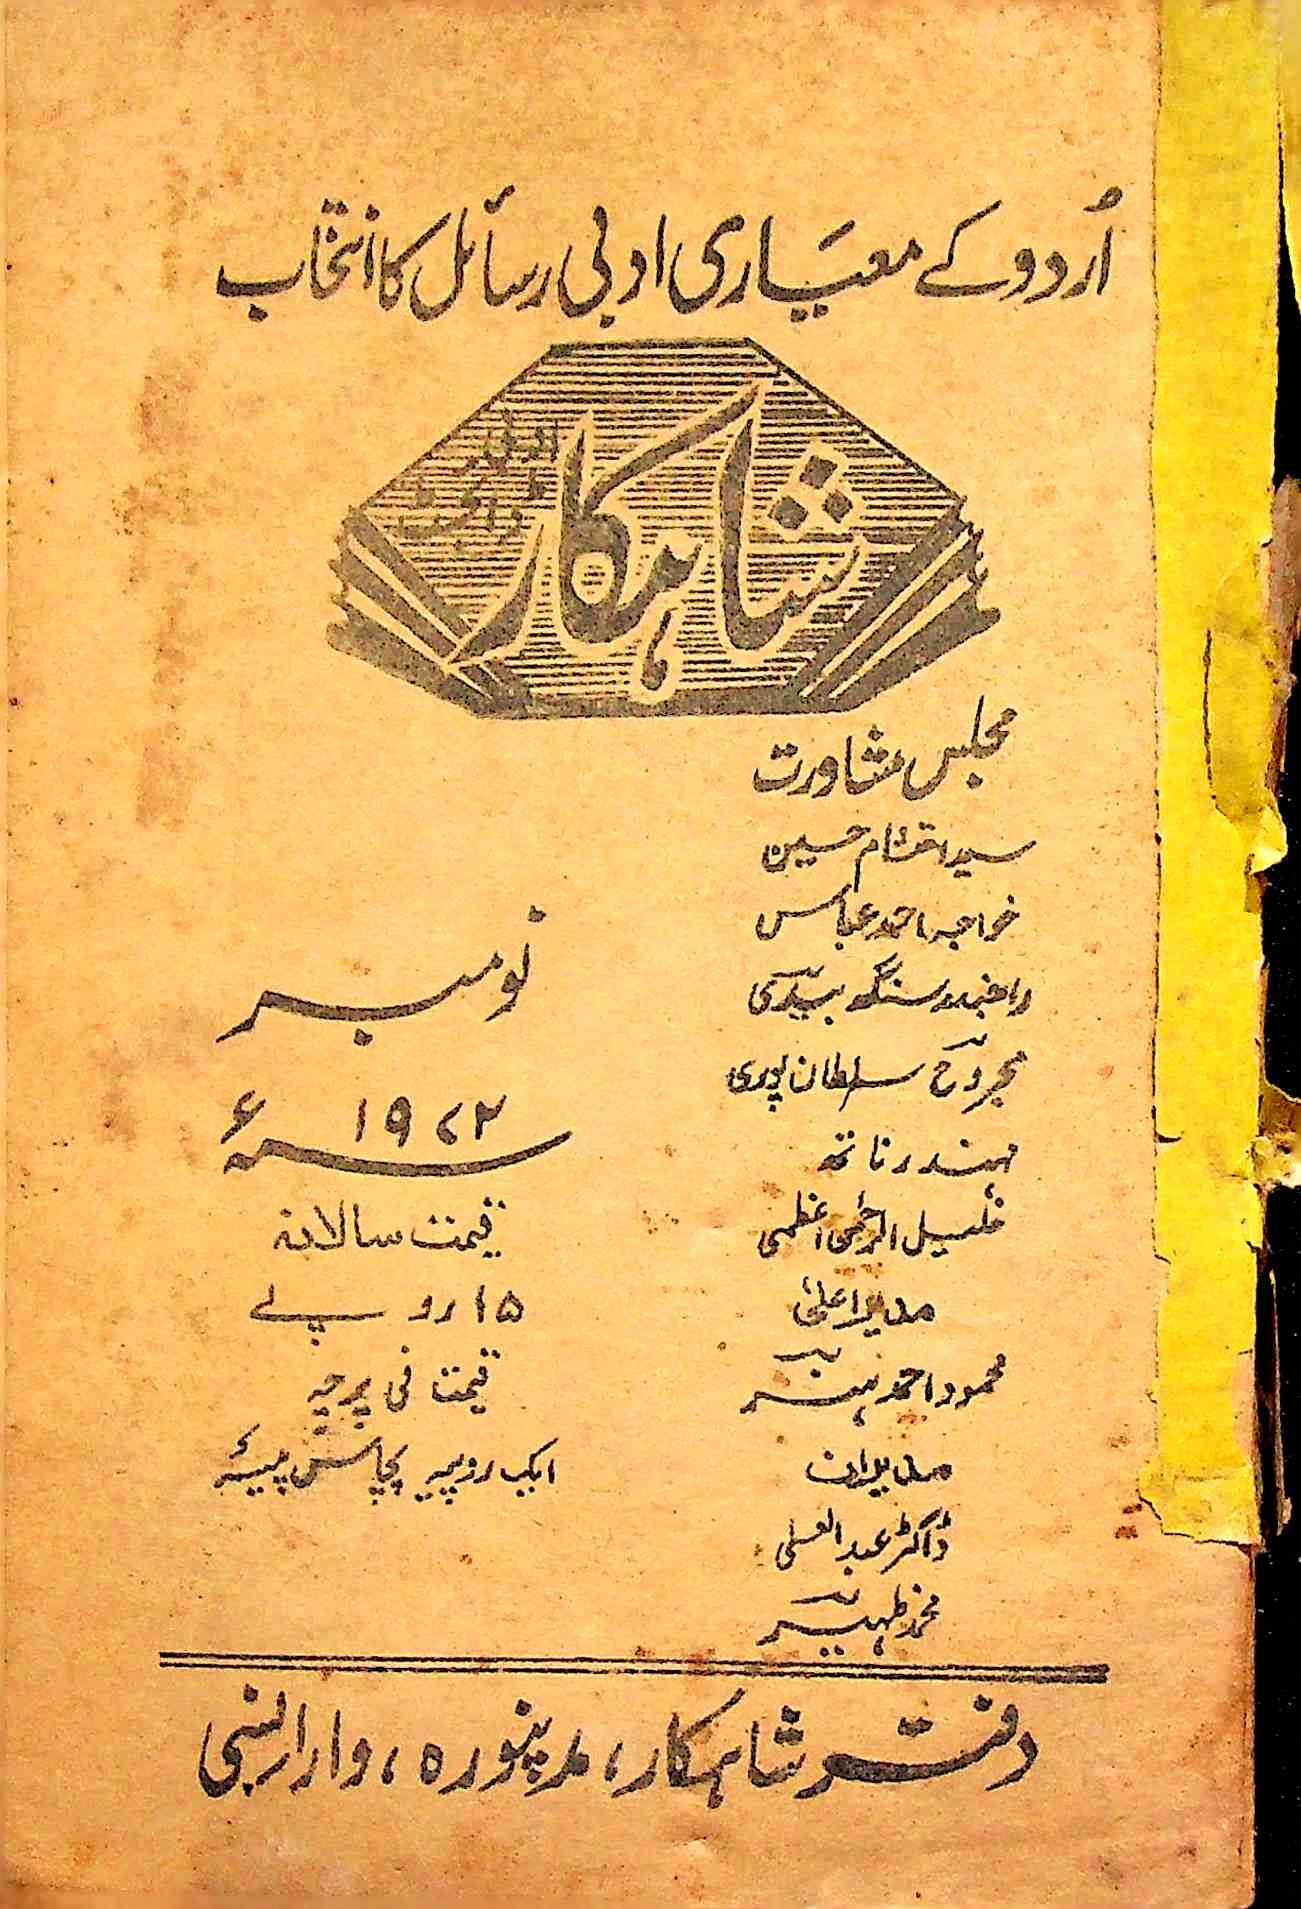 اُردو کے معیاری ادبی رسائل کا انتخاب
شاہکار
اردو
ڈائجسٹ
مجلس مشاورت
سید احتشام حسین
خواجہ احمد عباس
راجندر سنگھ بیدی
مجروح سلطان پوری
مہندر ناتھ
خلیل الرحمٰن اعظمی
مدیر اعلیٰ
محمود احمد ہنر
مدیران
ڈاکٹر عبد العلی
محمد ظہیر
نومبر
۱۹۷۲ء
قیمت سالانہ
۱۵ روپے
قیمت فی پرچہ
ایک روپیہ پچاس پیسئے
دفتر شاہکار، مدنپورہ، وارانسی